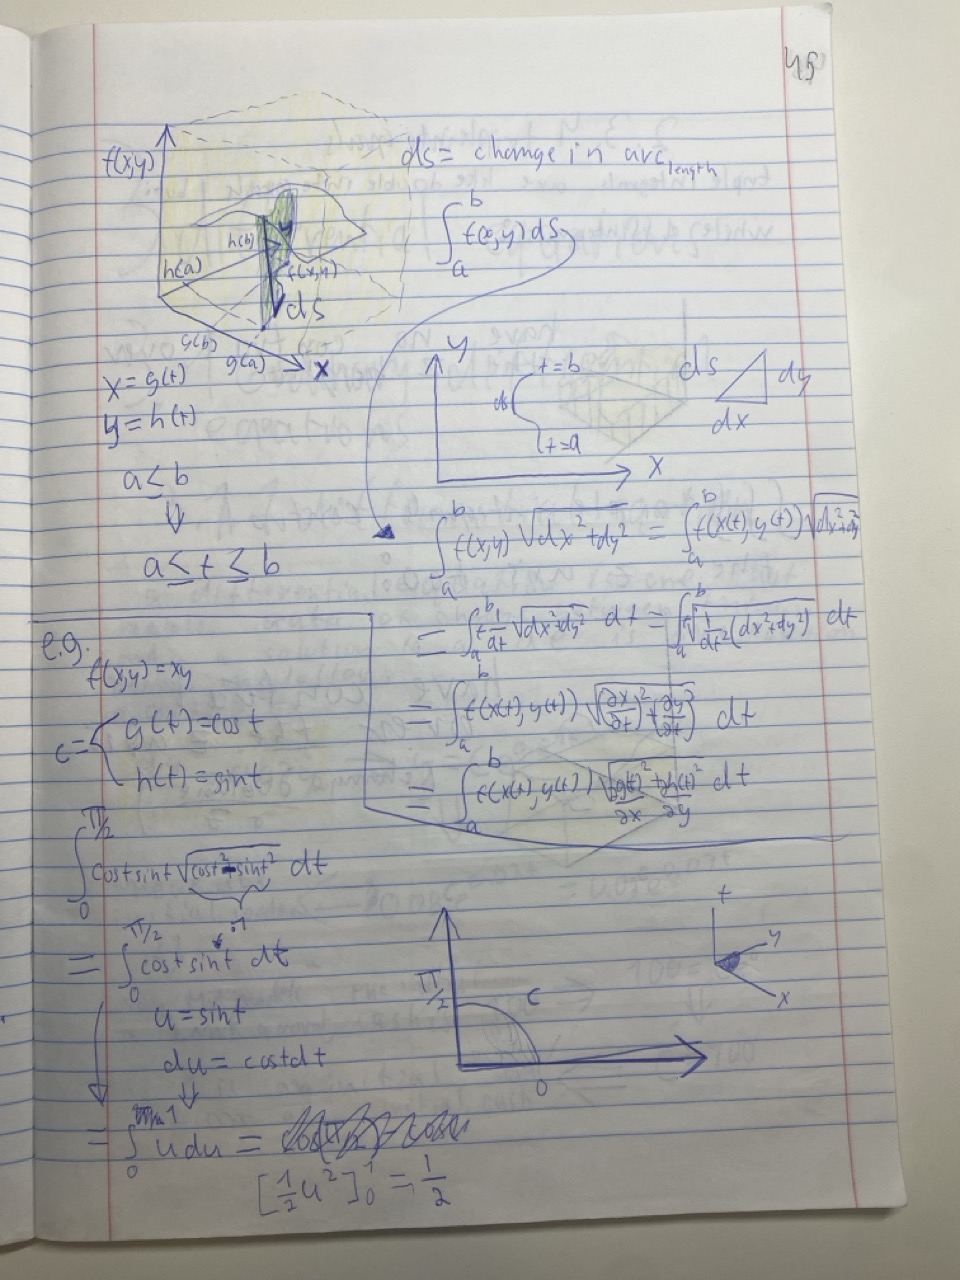 45
f(x,y)
ds = change in arc length
∫_a^b f(x,y) ds
h(b)
h(a)
f(x,y)
ds
g(b)
g(a)
x
x = g(t)
y = h(t)
a ≤ b
⇓
a ≤ t ≤ b
y
t=b
ds
t=a
x
ds
dy
dx
∫_a^b f(x,y) √(dx²+dy²) = ∫_a^b f(x(t), y(t)) √(dx²+dy²)
= ∫_a^b f 1/dt √(dx²+dy²) dt = ∫_a^b f √(1/dt² (dx²+dy²)) dt
= ∫_a^b f(x(t), y(t)) √((∂x/∂t)²+(∂y/∂t)²) dt
= ∫_a^b f(x(t), y(t)) √(∂g(t)²/∂x + ∂h(t)²/∂y) dt
e.g.
f(x,y) = xy
c = { g(t) = cos t
h(t) = sin t
∫_0^{π/2} cost sint √(cost²+sint²) dt
= ∫_0^{π/2} cost sint dt
u = sint
du = cost dt
⇓
= ∫_0^1 u du =
[½u²]_0^1 = ½
π/2
c
0
t
y
x